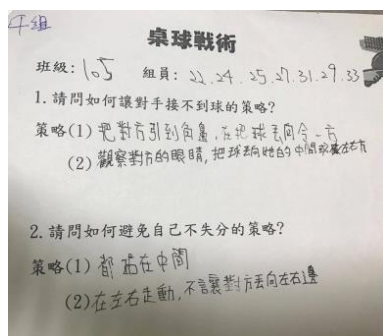 4組
桌球戰術
班級：105 組員：22.24.25.27.31.29.33
1.請問如何讓對手接不到球的策略?
策略(1) 把對方引到角邊,在把球丟向令一方
(2) 觀察對方的眼睛,把球丟向她的中間或左右方
2.請問如何避免自己不失分的策略?
策略(1) 都站在中間
(2)在左右走動,不讓對方丟向左右邊